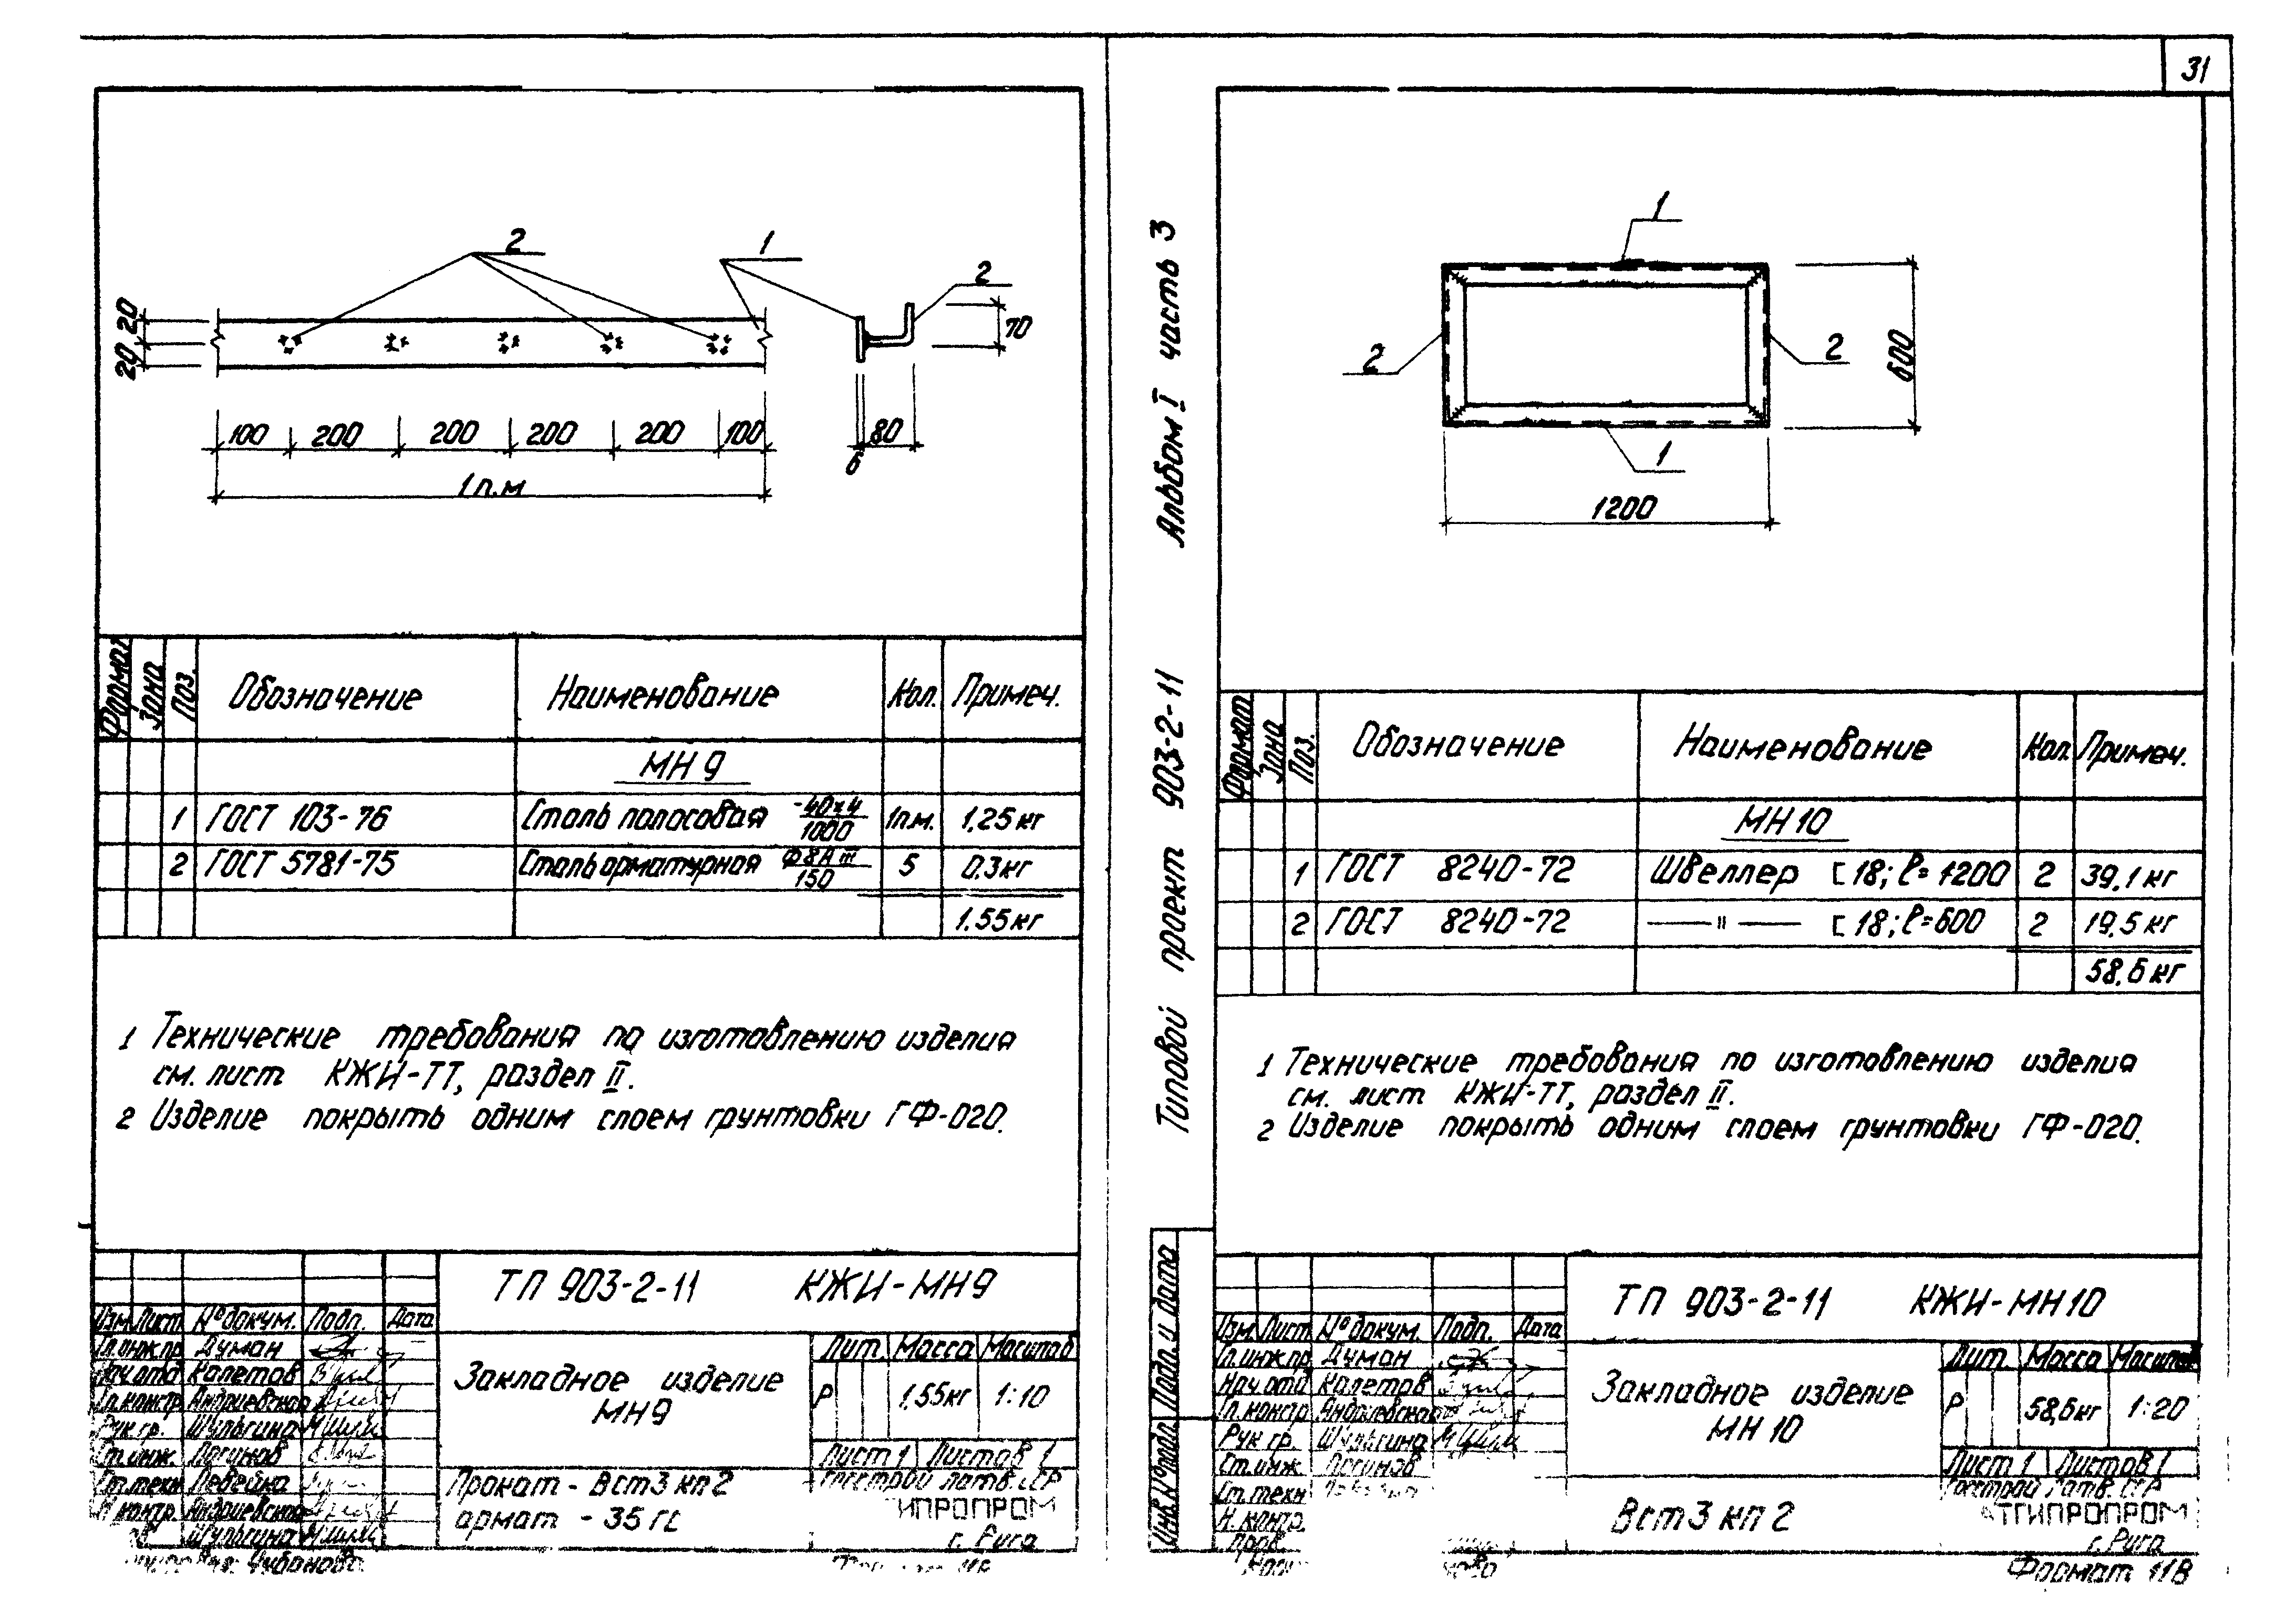 31
2
1
2
20
20
70
100 200 200 200 200 100
6 80
1 п.м
Формат Зона Поз. Обозначение Наименование Кол. Примеч.
МН 9
1 ГОСТ 103-76 Сталь полосовая -40×4/1000 1п.м. 1,25 кг
2 ГОСТ 5781-75 Сталь арматурная Ф8АIII/150 5 0.3 кг
1.55 кг
1 Технические требования по изготовлению изделия
см. лист КЖИ-ТТ, раздел II.
2 Изделие покрыть одним слоем грунтовки ГФ-020.
ТП 903-2-11 КЖИ-МН9
Изм. Лист № докум. Подп. Дата
Гл.инж.пр. Думан
Нач.отд Калетов
Гл.констр Андриевская
Рук.гр. Шульгина
Ст.инж. Логинов
Ст.техн Левейка
Н.контр. Андриевская
Шульгина
Закладное изделие
МН9
Лит. Масса Масштаб
Р 1,55кг 1:10
Лист 1 Листов 1
Прокат - Вст3 кп2
армат - 35 гс
Госстрой Латв. ССР
ИПРОПРОМ
г. Рига
Типовой проект 903-2-11 Альбом I часть 3
Инв.№ подл. Подп. и дата
1
2
2
600
1
1200
Формат Зона Поз. Обозначение Наименование Кол. Примеч.
МН 10
1 ГОСТ 8240-72 Швеллер [ 18; ℓ= 1200 2 39,1 кг
2 ГОСТ 8240-72 —— " —— [ 18; ℓ=600 2 19,5 кг
58,6 кг
1 Технические требования по изготовлению изделия
см. лист КЖИ-ТТ, раздел II.
2 Изделие покрыть одним слоем грунтовки ГФ-020.
ТП 903-2-11 КЖИ-МН10
Изм. Лист № докум. Подп. Дата
Гл.инж.пр. Думан
Нач.отд Калетов
Гл.констр Андриевская
Рук гр. Шульгина
Ст.инж Логинов
Ст.техн
Н.контр.
Пров.
Закладное изделие
МН 10
Лит. Масса Масштаб
Р 58,6кг 1:20
Лист 1 Листов 1
Вст3 кп2
Госстрой Латв. ССР
АТГИПРОПРОМ
г. Рига
Формат 11В